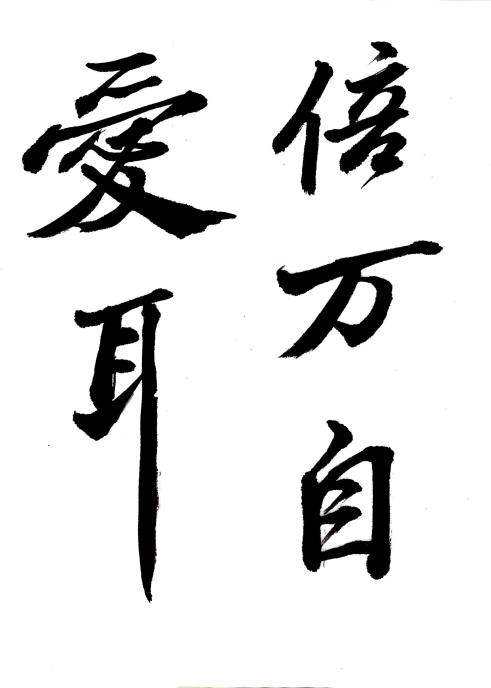 倍万自
愛耳